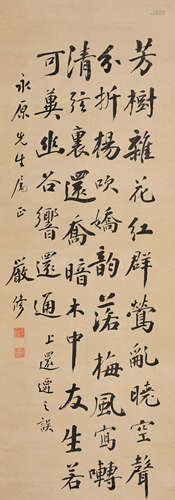 芳樹雜花紅群鶯亂曉空聲
分折楊吹嬌韵落梅風寫囀
清弦裏還喬暗木中友生若
可冀幽谷響還通 上還遷之誤
永原先生屬正
嚴修